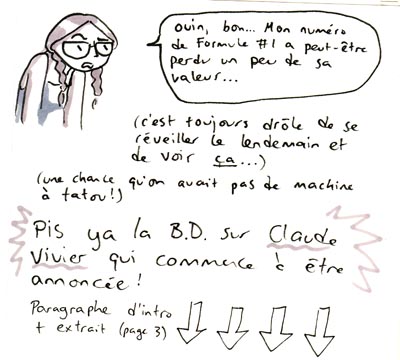 Ouin, bon... Mon numéro
de Formule #1 a peut-être
perdu un peu de sa
valeur...
(c'est toujours drôle de se
réveiller le lendemain et
de voir ça...)
(une chance qu'on avait pas de machine
à tatou!)
Pis ya la B.D. sur Claude
Vivier qui commence à être
annoncée!
Paragraphe d'intro
+ extrait (page 3)